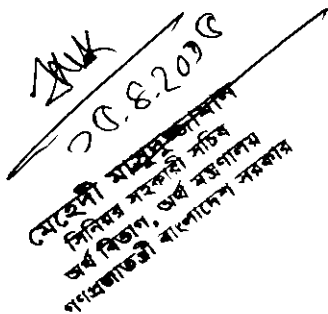 ১৫.৪.২০১৫
মেহেদী মাসুদুজ্জামান
সিনিয়র সহকারী সচিব
অর্থ বিভাগ, অর্থ মন্ত্রণালয়
গণপ্রজাতন্ত্রী বাংলাদেশ সরকার